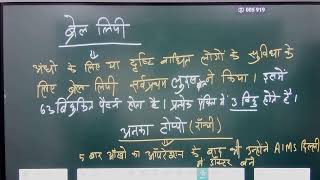 ब्रेल लिपी
अंधो के लिए या दृष्टि बाधित लोगों के सुविधा के
लिए ब्रेल लिपी सर्वप्रथम लुइस ने किया। इसमें
63 बिन्दुकित पैटर्न होता है। प्रत्येक पंक्ति में 3 बिंदु होते है।
अनका टोप्पो (राँची)
5 बार आँखो का ऑपरेशन के बाद भी उन्होंने AIMS दिल्ली
में डॉक्टर बने